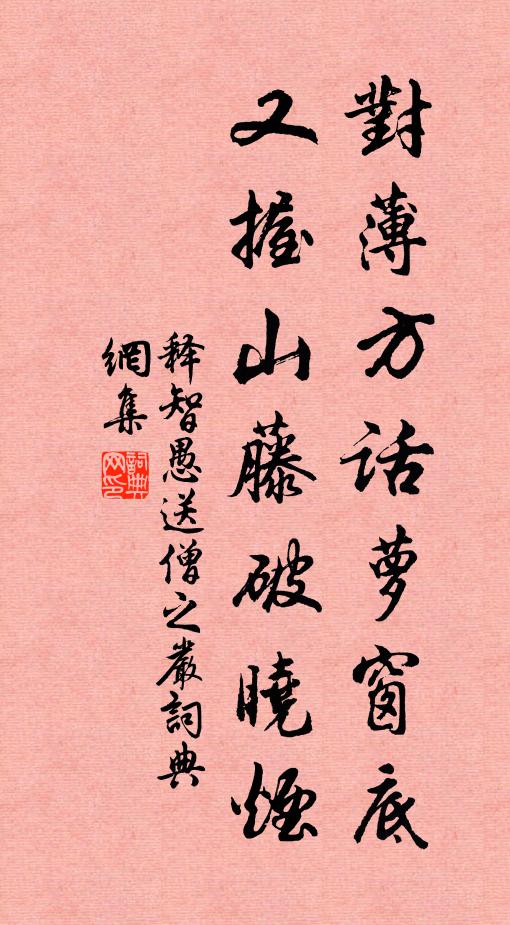 對薄方話夢窗底
又握山藤破曉煙
释智愚送僧之嚴詞典
網集
詞典網印